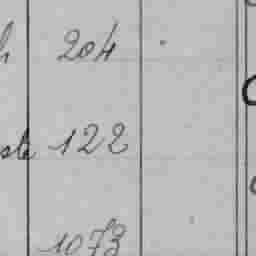 204
ste 122
1073